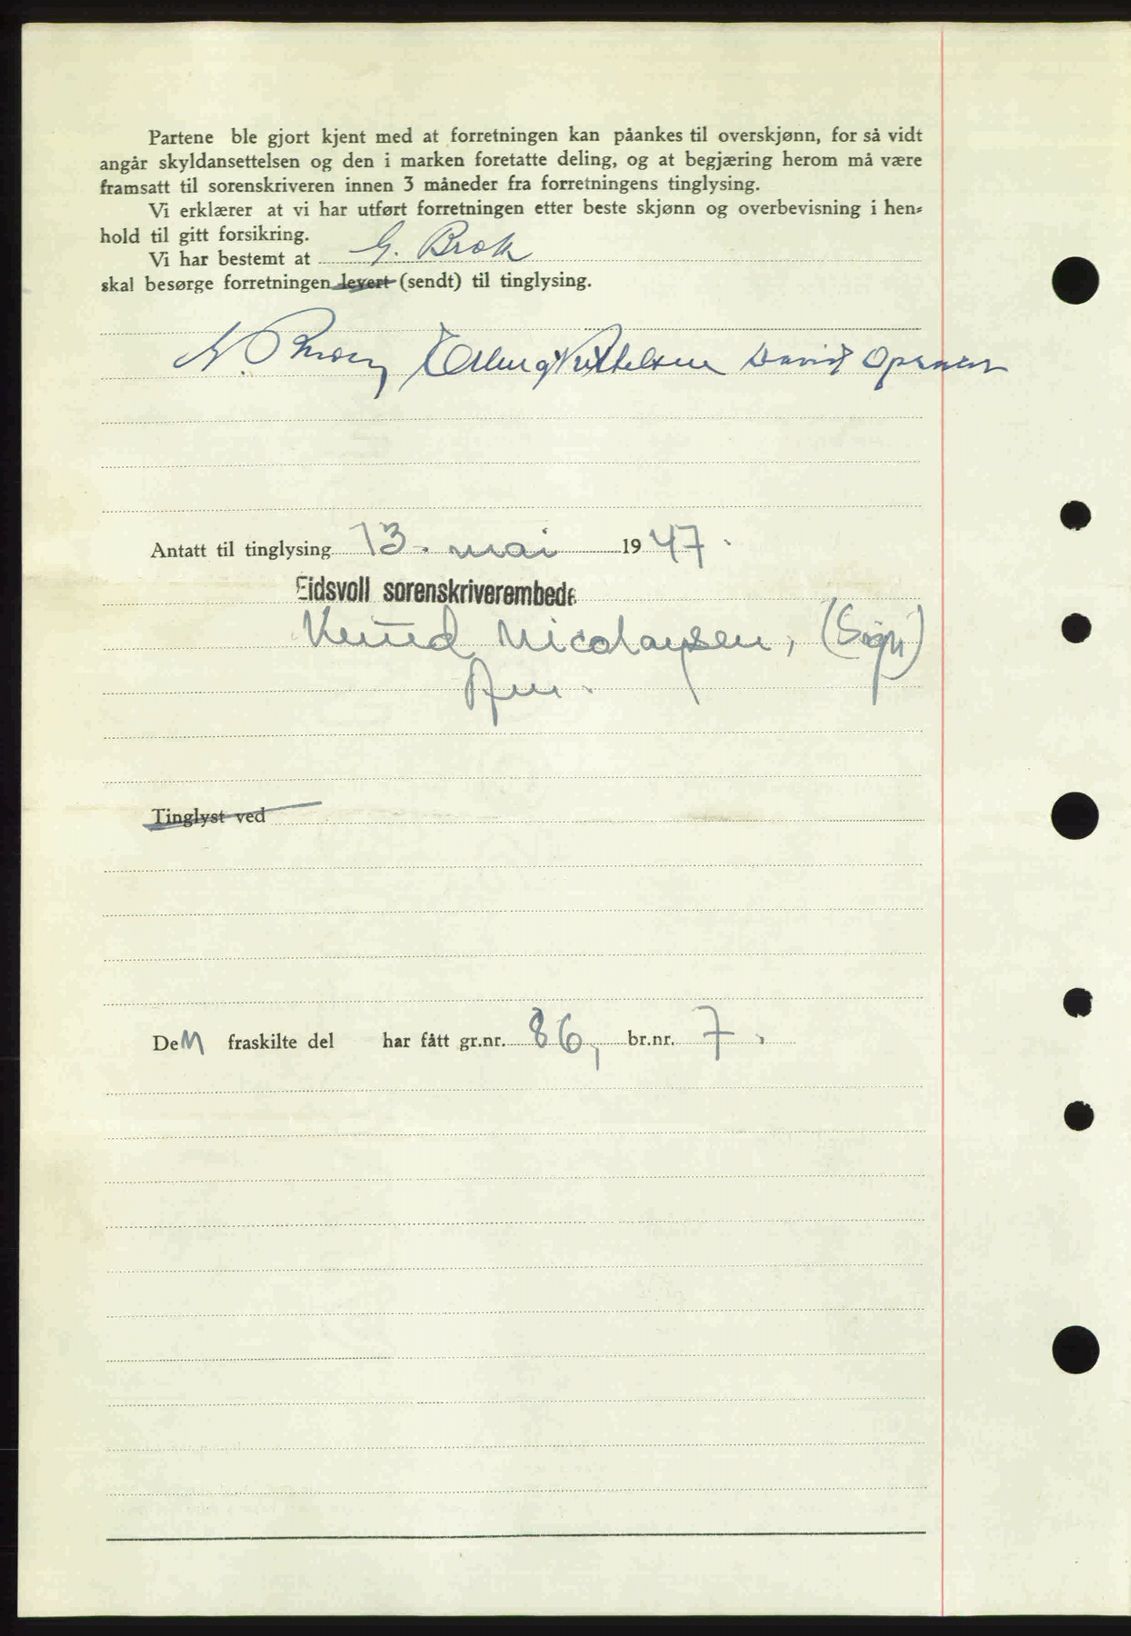 Partene ble gjort kjent med at forretningen kan påankes til overskjønn, for så vidt
angår skyldansettelsen og den i marken foretatte deling, og at begjæring herom må være
framsatt til sorenskriveren innen 3 måneder fra forretningens tinglysing.
Vi erklærer at vi har utført forretningen etter beste skjønn og overbevisning i hen-
hold til gitt forsikring.
Vi har bestemt at G. Brok
skal besørge forretningen levert (sendt) til tinglysing.
Erling Kittelsen David
Antatt til tinglysing 13. mai 1947.
Eidsvoll sorenskriverembede
Knud Nicolaysen, (Sign)
Det fraskilte del har fått gr.nr. 86, br.nr. 7.